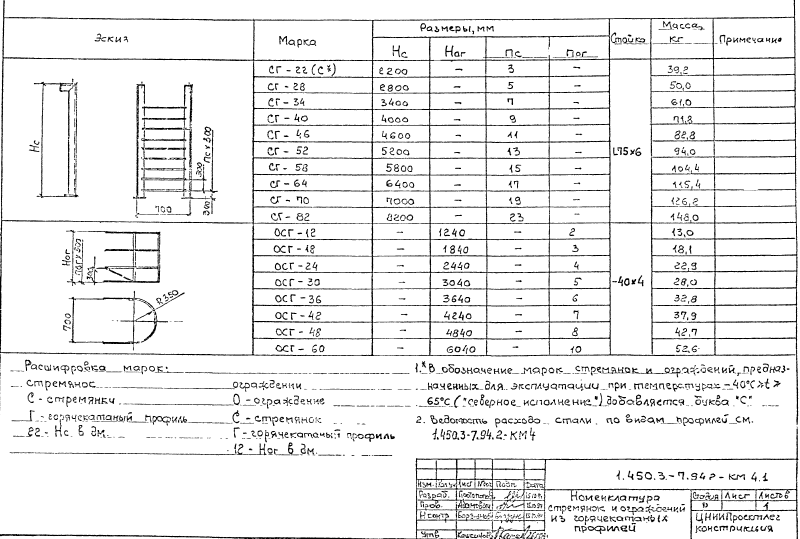 Эскиз Марка Размеры, мм Стойка Масса, кг Примечание
Нс Ног Пс Пог
СГ-22 (С*) 2200 – 3 – 39,2
СГ-28 2800 – 5 – 50,0
СГ-34 3400 – 7 – 61,0
СГ-40 4000 – 9 – 71,8
СГ-46 4600 – 11 – 82,8
СГ-52 5200 – 13 – L75×6 94,0
СГ-58 5800 – 15 – 104,4
СГ-64 6400 – 17 – 115,4
СГ-70 7000 – 19 – 126,2
СГ-82 8200 – 23 – 148,0
Нс
Пс х 300
300
700
300
ОСГ-12 – 1240 – 2 13,0
ОСГ-18 – 1840 – 3 18,1
ОСГ-24 – 2440 – 4 22,9
ОСГ-30 – 3040 – 5 –40×4 28,0
ОСГ-36 – 3640 – 6 32,8
ОСГ-42 – 4240 – 7 37,9
ОСГ-48 – 4840 – 8 42,7
ОСГ-60 – 6040 – 10 52,6
Ног
Пог х 300
300
700
R350
Расшифровка марок:
стремянос
С - стремянки
Г - горячекатаный профиль
22 - Нс в дм.
ограждении
О - ограждение
С - стремянок
Г - горячекатаный профиль
12 - Ног в дм.
1.* В обозначение марок стремянок и ограждений, предназ-
наченных для эксплуатации при температурах -40°С>t≥
65°С ("северное исполнение") добавляется буква "С"
2. Ведомость расхода стали по видам профилей см.
1.450.3-7.94.2-КМ4
1.450.3-7.94.2-КМ 4.1
Изм. Кол.уч Лист №док Подп. Дата
Разраб.
Пров.
Н.контр.
Утв.
Номенклатура
стремянок и ограждений
из горячекатаных
профилей
Стадия Лист Листов
Р 1
ЦНИИПроектлег
конструкция